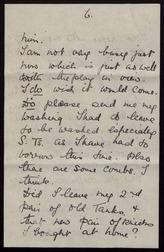 6.
him.
I am not very busy just
now which is just as well
with the play in view.
I do wish it would come.
Do please send me my
washing I had to leave
to be washed especially
S. Ts. as I have had to
borrow this time. Also
there are some combs. I
think.
Did I leave my 2nd
pair of old Tanks, &
that new pair of
I bought at home?